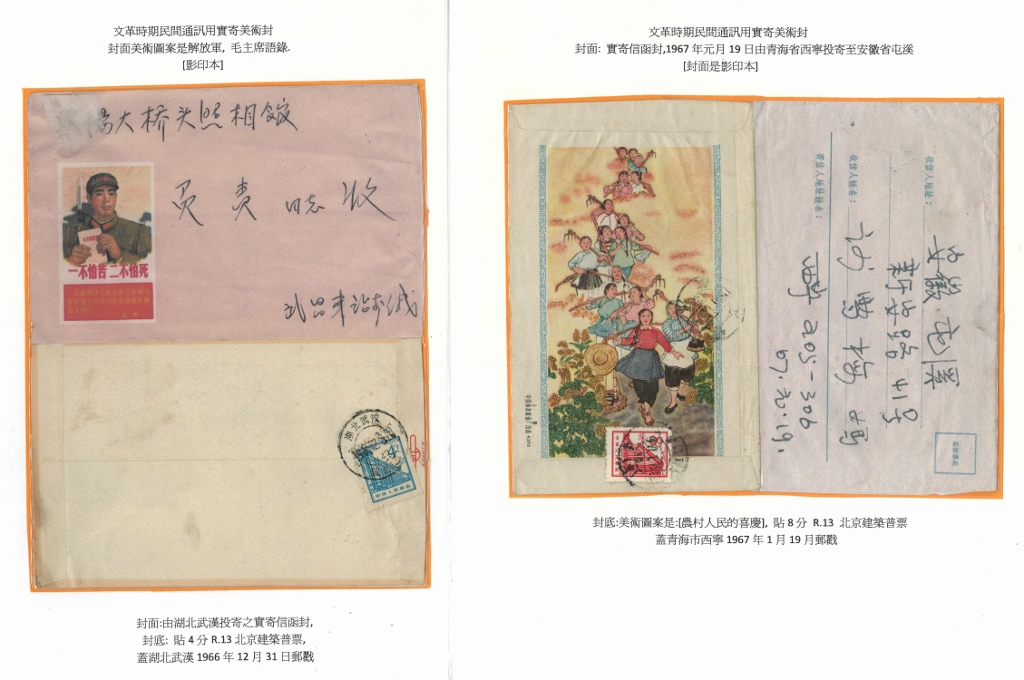 文革時期民間通訊用實寄美術封
封面美術圖案是解放軍, 毛主席語錄.
[影印本]
大桥头照相馆
负责 同志 收
一不怕苦 二不怕死
武昌車站
湖北武汉
4
中国人民邮政
封面:由湖北武漢投寄之實寄信函封,
封底: 貼 4 分 R.13 北京建築普票,
蓋湖北武漢 1966 年 12 月 31 日郵戳
文革時期民間通訊用實寄美術封
封面: 實寄信函封,1967 年元月 19 日由青海省西寧投寄至安徽省屯溪
[封面是影印本]
收信人地址:
安徽 屯溪
新安路 41号
收信人姓名:
寄信人地址姓名:
205-306
67.元.19.
8
封底:美術圖案是:[農村人民的喜慶], 貼 8 分 R.13 北京建築普票
蓋青海市西寧 1967 年 1 月 19 月郵戳